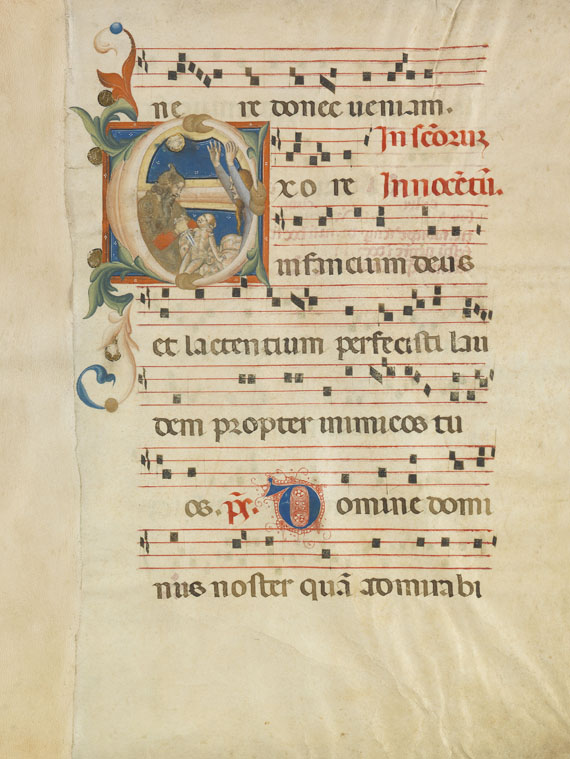 ne re donec ueniam.
In sc̄oruꝫ
Exo re Innocētū.
infancium deus
et lactencium perfecisti lau
dem propter inimicos tu
os. p̄s. Domine domi
nus noster quā admirabi